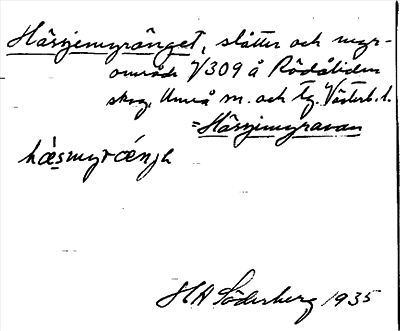 Hässjemyränget, slåtter och myr-
område V309 å Rödåliden
skog, Umeå sn. och tg. Västerb. l.
= Hässjemyravan
hæ̀smyræ̀ńjh
HA Söderberg 1935